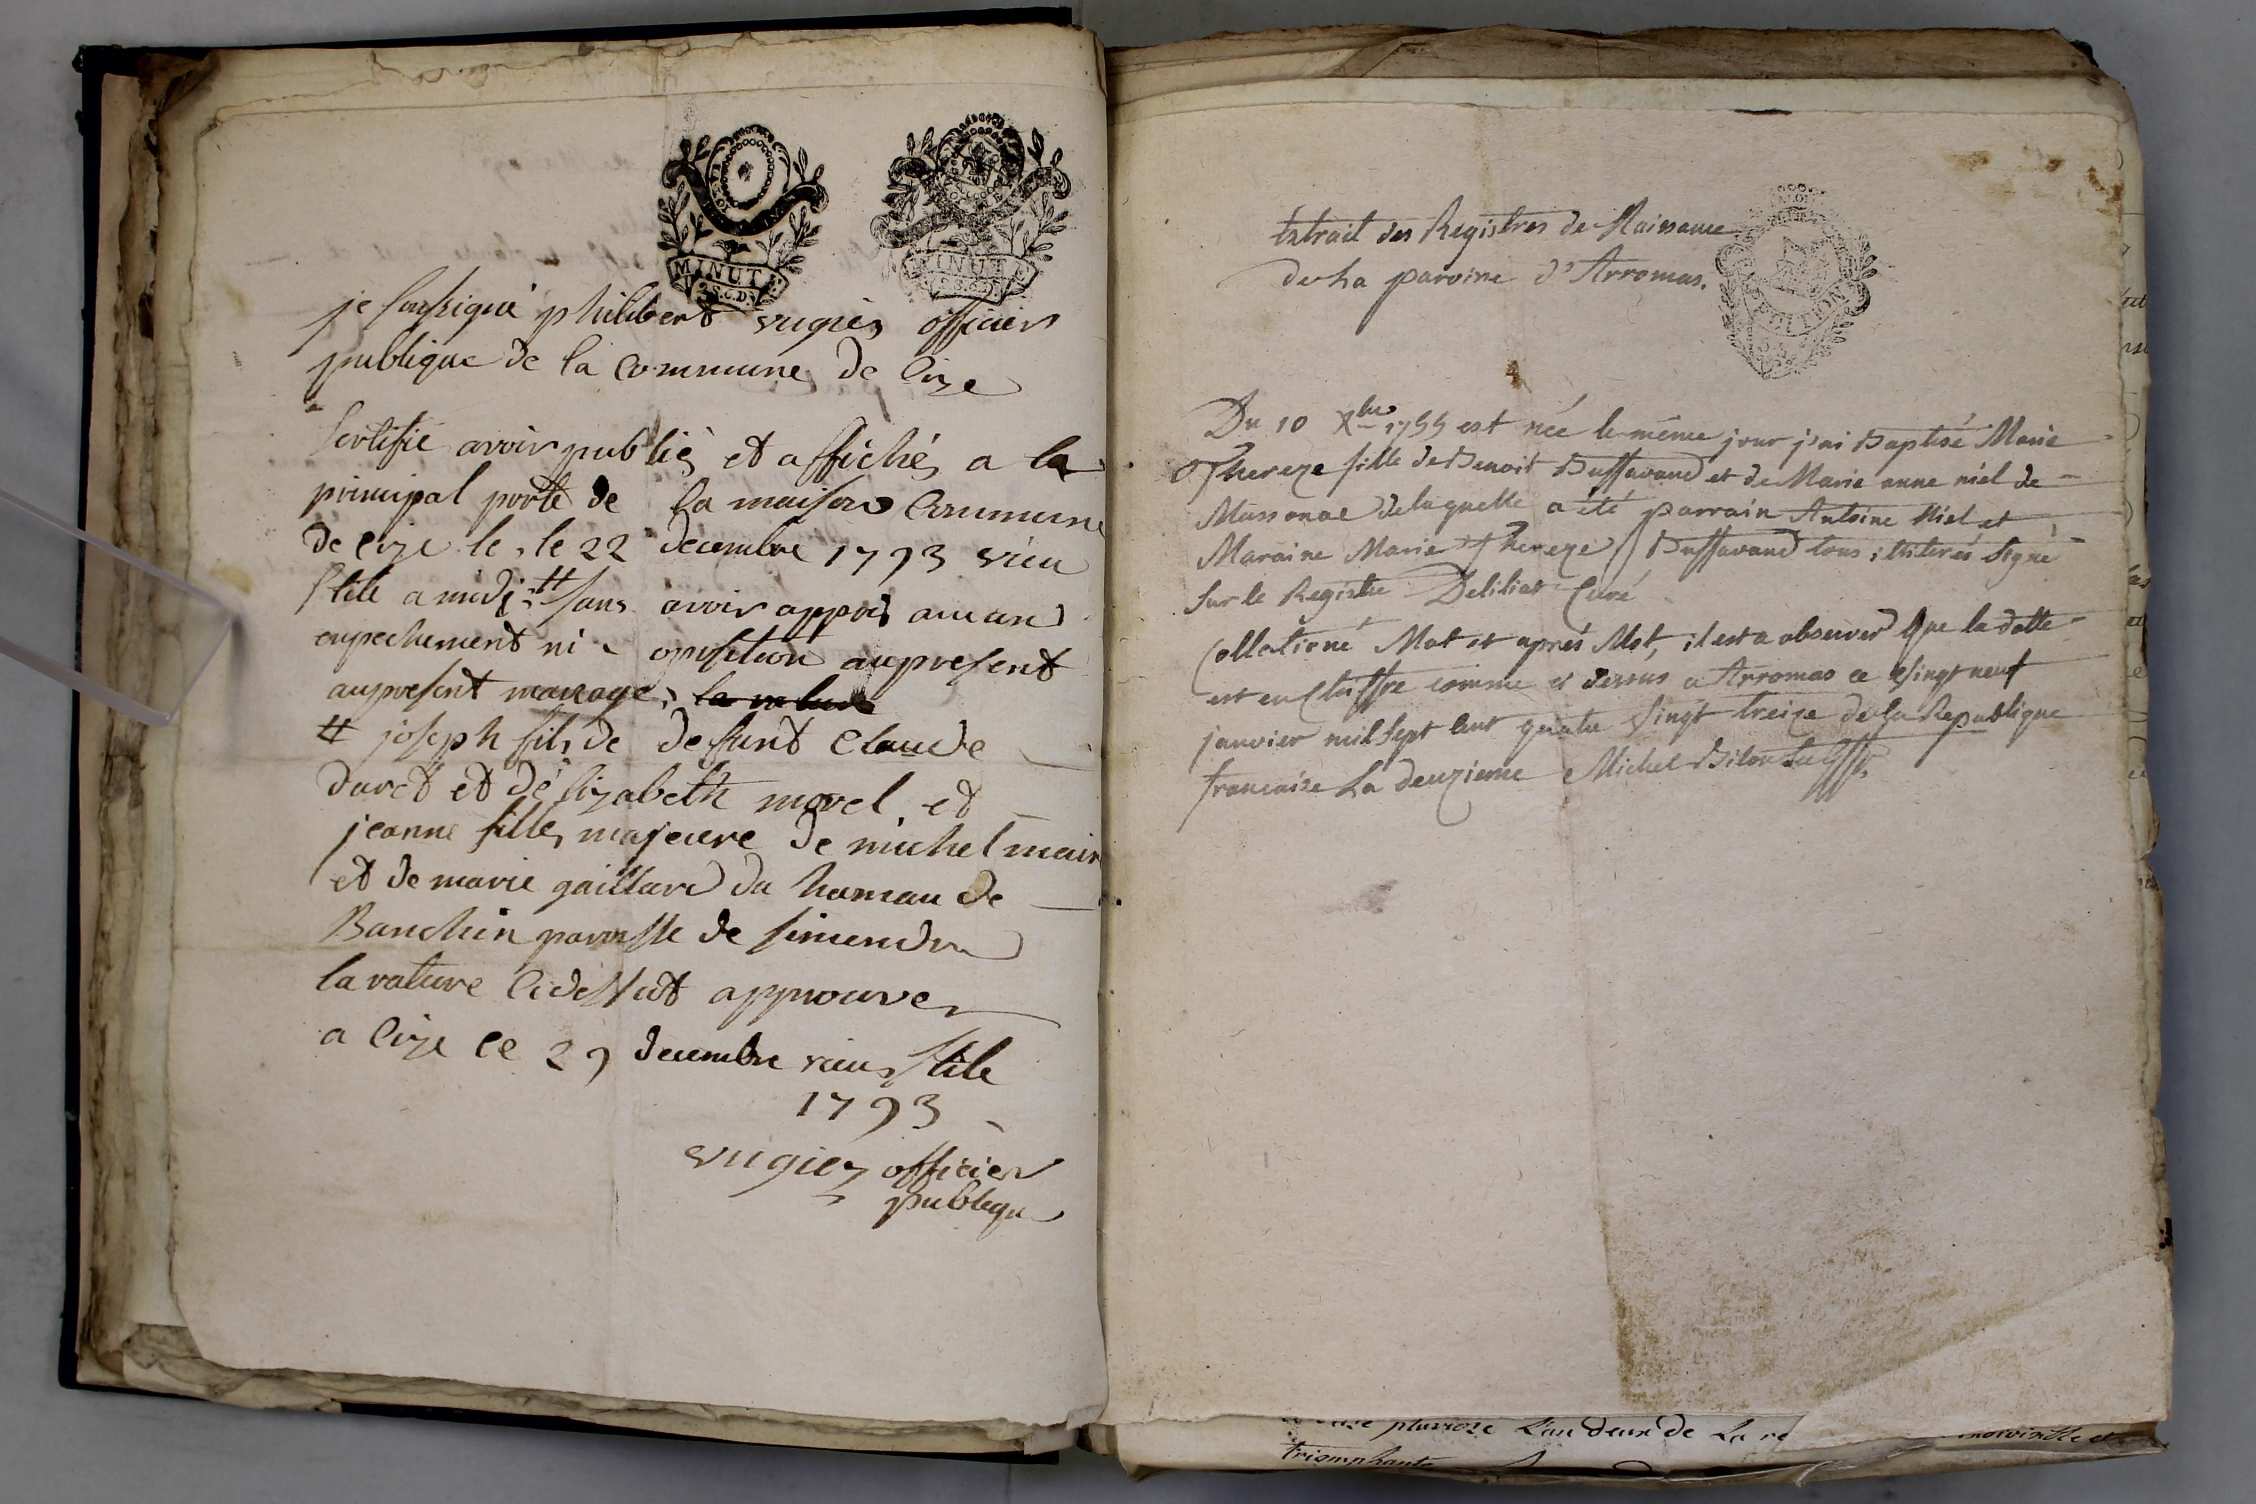 MINUTE
2.S.6.D.
MINUTE
je soussigné philibert vugiez officier
publique de la commune de Cize
sertifie avoir publiés et affichés a la
principal porte de la maison Commune
de Cize le, le 22 decembre 1793 vieu
stile a midj # sans avoir appris aucun
enpechement ni oposition aupresent
aupresent mariage, la rature
# joseph fils de defunt Claude
duret et délizabeth morel et
jeanne fille majeure de michel
et de marie gaillard du hameau de
Banchin paroisse de simendre
la rature cidessut approuver
a Cize ce 29 decembre vieu stile
1793
vugiez officier
publique
Extrait des Registres de Naissance
de La paroisse d'Arromas.
Du 10 Xbre 1755 est née le même jour j'ai Baptisé Marie
Thereze fille de Benoit Buffavand et de Marie anne niel de
Massonae delaquelle a été parrain Antoine Niel et
Maraine Marie Thereze Buffavand tous illiterés Signé
Sur le Registre Deliliat Curé
Collationé Mot et aprés Mot, il est a observer Que la datte
est en Chiffre comme ci dessus a Arromas ce Vingt neuf
janvier mil Sept Cent quatre Vingt treize de la Republique
francaise La deuzieme Michel
pluvioze L'an deux de La
triomphante